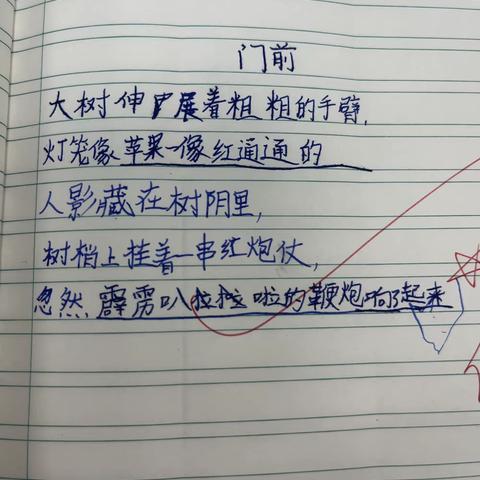 门前
大树伸展着粗粗的手臂,
灯笼像苹果一像红通通的
人影藏在树阴里,
树梢上挂着一串红炮仗,
忽然霹雳叭拉拉啦的鞭炮响了起来